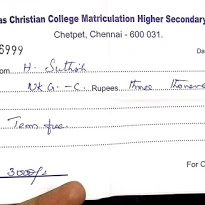 as Christian College Matriculation Higher Secondary
Chetpet, Chennai - 600 031.
5999 Da
om H. Suthish
UKG - C. Rupees three thousand
Term fee
For C
3000/-